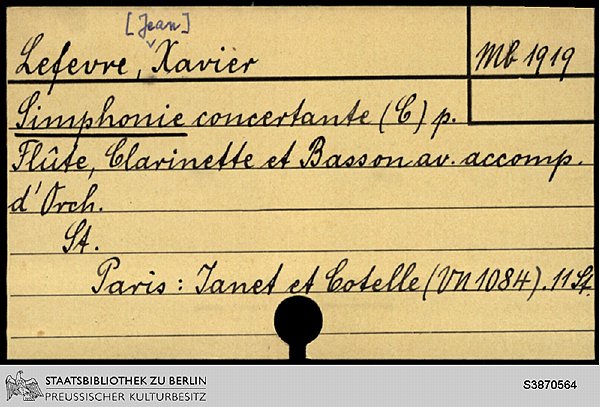 [Jean]
Lefevre, Xavier
Mb 1919
Simphonie concertante (C) p.
Flûte, Clarinette et Basson av. accomp.
d'Orch.
St.
Paris: Janet et Cotelle (VN 1084). 11 St.
STAATSBIBLIOTHEK ZU BERLIN
PREUSSISCHER KULTURBESITZ
S3870564